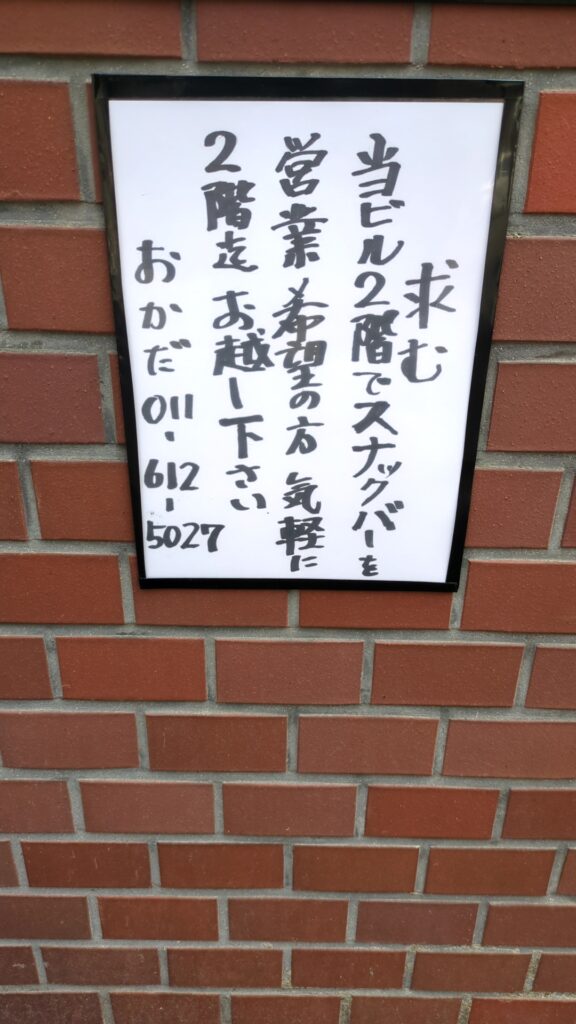 求む
当ビル2階でスナックバーを
営業希望の方 気軽に
2階迄 お越し下さい
おかだ 011-612-5027